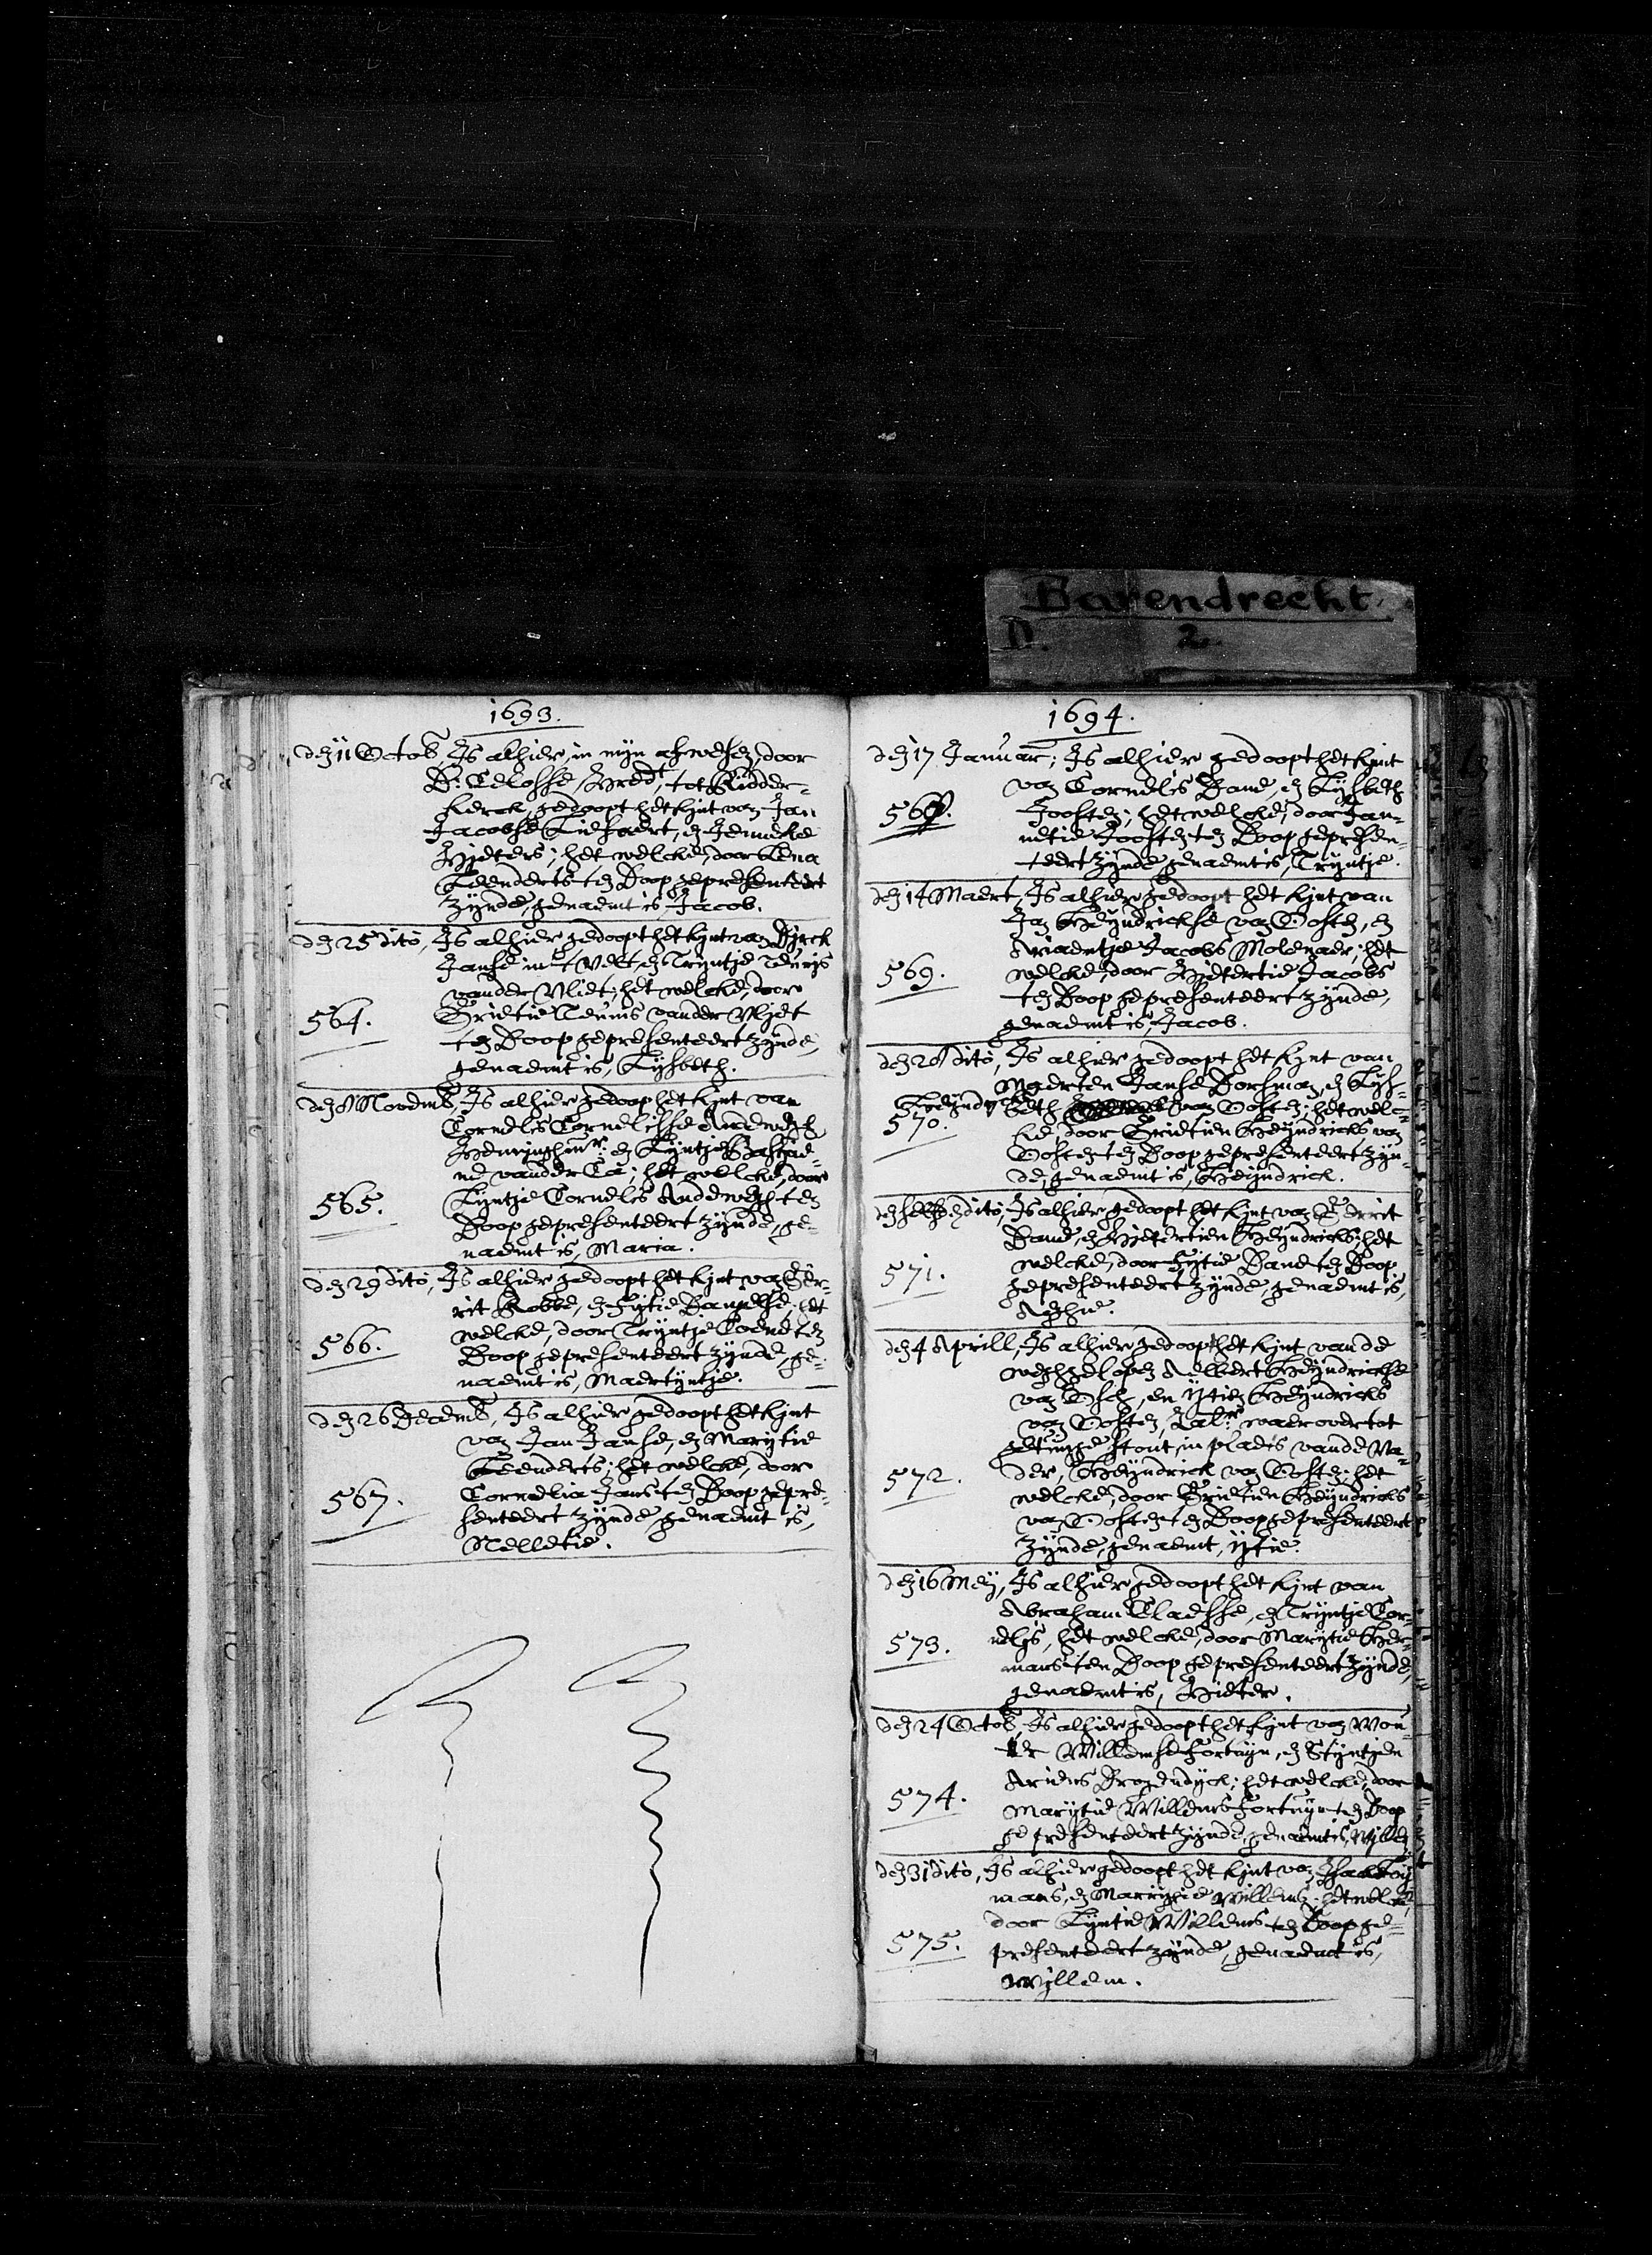 Barendrecht.
D. 2
1693.
den 11 Octob, Is alhier, in mijn afwesen, door
D: Celosse, Predt, tot Ridder-
kerck, gedoopt het kynt van Jan
Jacobse Liefaert, en Jenneke
Pieters; het welcke, door Lena
Leenderts ten Doop gepresenteert
zynde, genaemt is, Jacob.
den 25 dito, Is alhier gedoopt het kynt van Dirck
Janse in 't Velt, en Tryntje Teunis
vander Vliet; het welcke, door
564. Grietie Teunis vander Vliet
ten Doop gepresenteert zynde,
genaemt is, Lysbeth.
den 8 Novemb, Is alhier gedoopt het kynt van
Cornelis Cornelisse Andeweg,
en Lyntje Bastiae-
ne vander ; het welcke, door
565. Lyntje Cornelis Andeweg ten
Doop gepresenteert zynde, ge-
naemt is, Maria.
den 29 dito, Is alhier gedoopt het kynt van Ger-
rit Robbe, en Fytie Danielse; het
566. welcke, door Tryntje Coene ten
Doop gepresenteert zynde, ge-
naemt is, Maertyntje.
den 26 Decemb, Is alhier gedoopt het kynt
van Jan Janse, en Marytie
Leenderts; het welcke, door
567. Cornelia Jans ten Doop gepre-
senteert zynde, genaemt is,
Nelletie.
1694.
den 17 Januar; Is alhier gedoopt het kynt
van Cornelis Dane, en Lysbeth
568. Joosten; het welcke, door Jan-
netie Joosten ten Doop gepresen-
teert zynde, genaemt is, Tryntje.
den 14 Maert, Is alhier gedoopt het kynt van
Jan Heyndrickse van Oosten, en
Ariaentje Jacobs Molenaer; het
569. welcke, door Pietertie Jacobs
ten Doop gepresenteert zynde,
genaemt is, Jacob.
den 28 dito, Is alhier gedoopt het kynt van
Maerten Janse Dorsman, en Lys-
Heyndricks beth van Oosten; het wel-
570. ke, door Grietien Heyndricks van
Oosten ten Doop gepresenteert zyn-
de, genaemt is, Heyndrick.
den selven dito, Is alhier gedoopt het kynt van Gerrit
Dane, en Pietertien Heyndricks; het
571. welcke, door Fytie Dane ten Doop
gepresenteert zynde, genaemt is,
den 4 Aprill, Is alhier gedoopt het kynt van de
weghgelopen Aelbert Heyndrickse
van , en Ijtien Heyndricks
van Oosten, waer over tot
getuyge stont, in plaets van de Va-
572. der, Heyndrick van Oosten; het
welcke, door Grietien Heyndricks
van Oosten ten Doop gepresenteert
zynde, genaemt, Ijtie.
den 16 Mey, Is alhier gedoopt het kynt van
Abraham Claesse, en Tryntje Cor-
573. nelis, het welcke, door Marytie Her-
mans ten Doop gepresenteert zynde,
genaemt is, Pieter.
den 24 Octob, Is alhier gedoopt het kynt van Wou-
ter Willemse Fortuyn, en Styntjen
Ariens Drogendyck; het welcke, door
574. Marytie Willems Fortuyn ten Doop
gepresenteert zynde, genaemt is, Willem
den 31 dito, Is alhier gedoopt het kynt van
mans, en Marrytie Willems; het welcke,
door Lyntie Willems ten Doop ge-
575. presenteert zynde, genaemt is,
Willem.